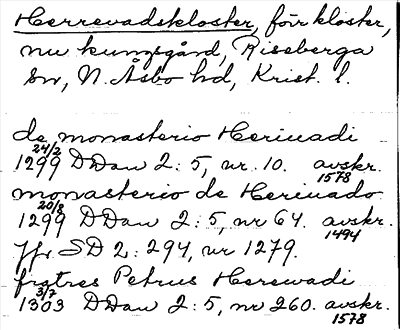 Herrevadskloster, förr kloster,
nu kungsgård, Riseberga
sn, N. Åsbo hd, Krist. l.
de monasterio Heriuadi
24/2
1299 DDan 2:5, nr. 10. avskr.
1578
monasterio de Heriuado
20/8
1299 DDan 2:5, nr 64. avskr.
1494
Jfr SD 2:294, nr 1279.
fratres Petrus Herewadi
3/7
1303 DDan 2:5, nr 260. avskr.
1578